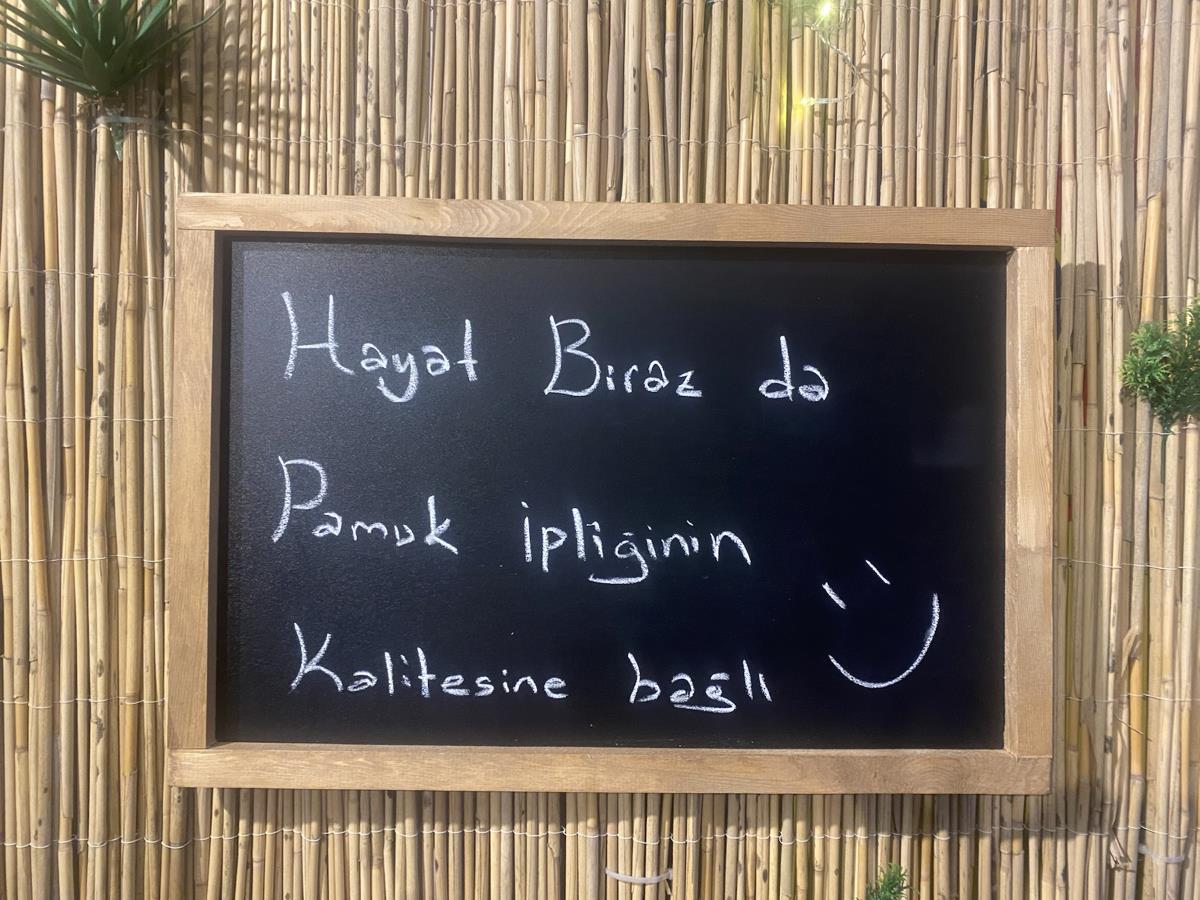 Hayat Biraz da
Pamuk ipliğinin
Kalitesine bağlı